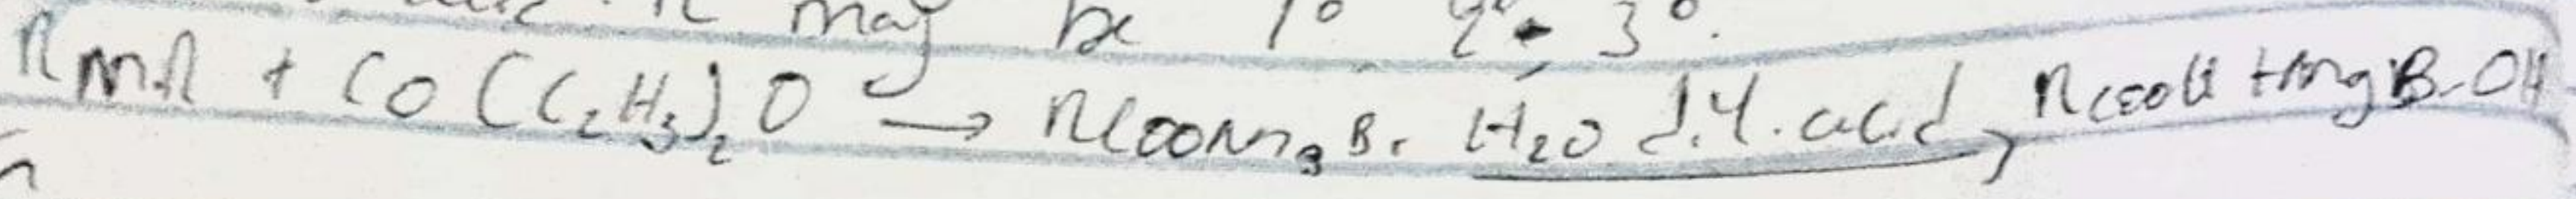 may be 1° 2° 3°.
RMR + CO (C₂H₅)₂O → RCOOMgBr H₂O dil. acid, RCOOH + MgBrOH